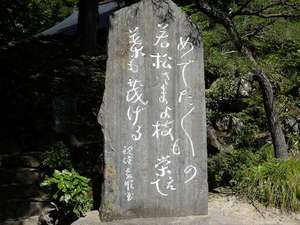 めでた〱の
若松さまよ枝も
栄えて
葉も茂げる